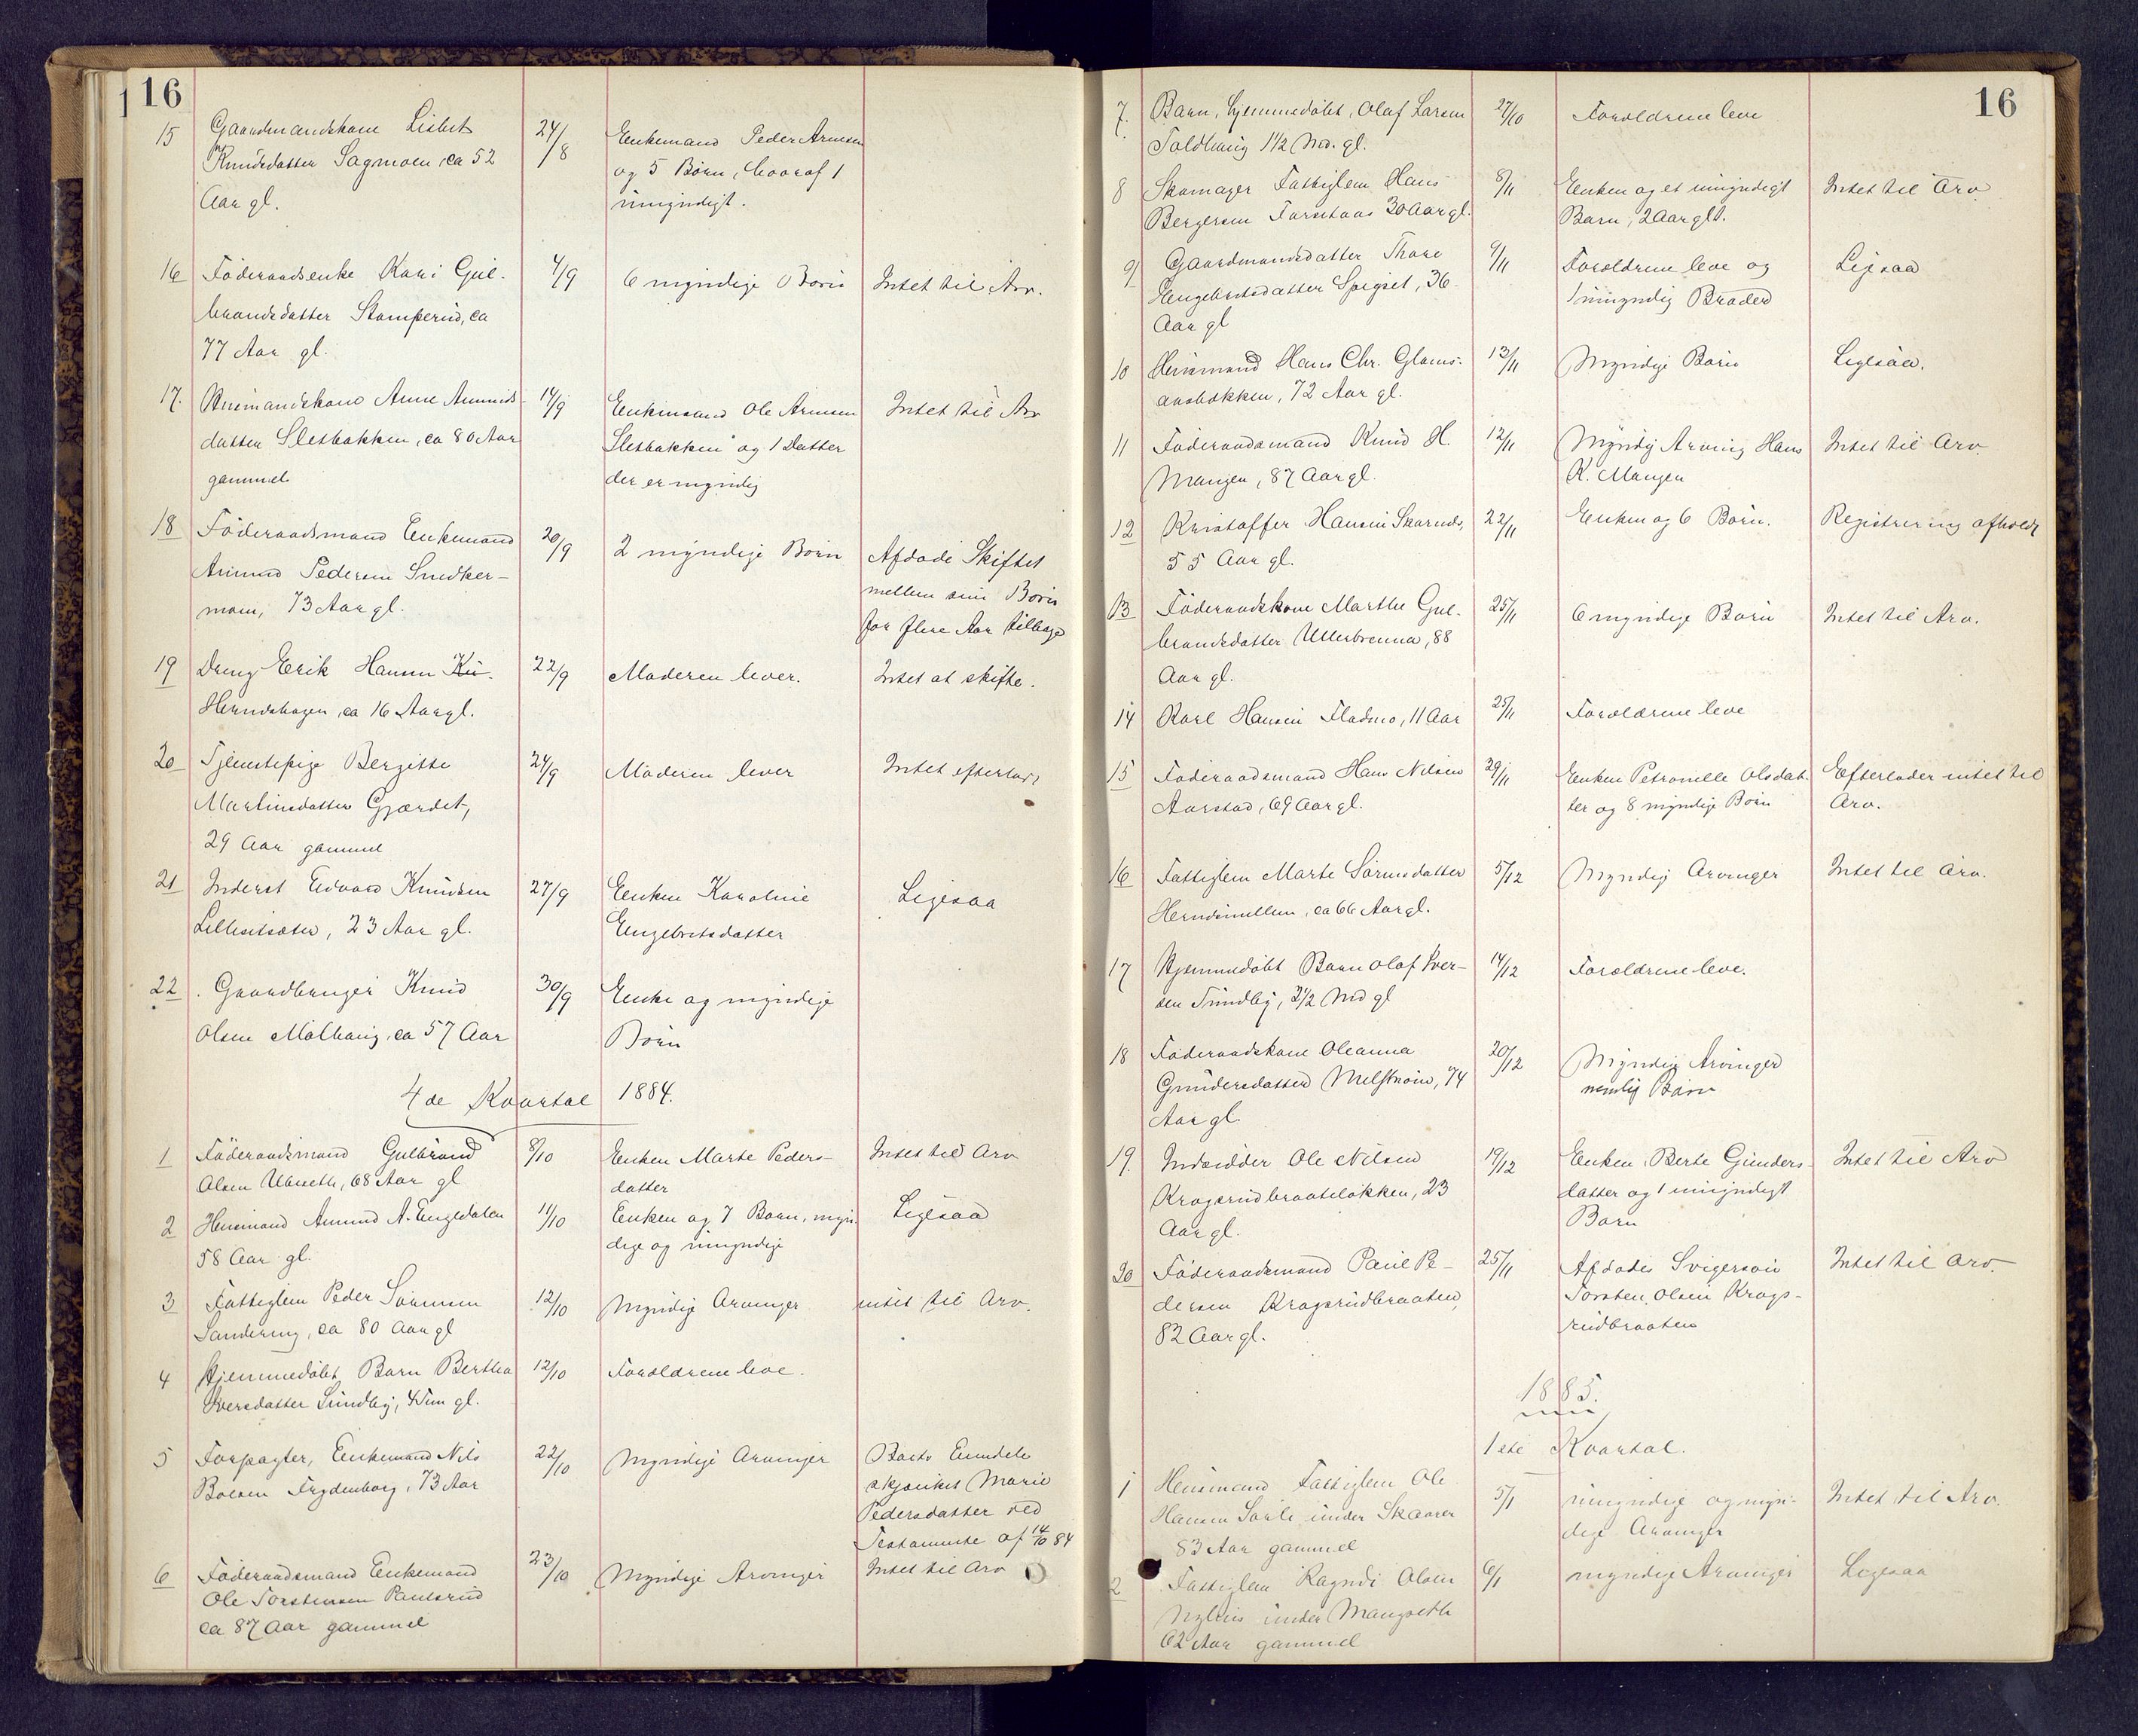 16
15 Gaardmandskone Lisbet 24/8 Enkemand Peder Arnesen
Knudsdatter Sagmoen, ca 52 og 5 Børn, hvoraf 1
Aar gl. umyndigt.
16 Föderaadsenke Kari Gul- 4/9 6 myndige Börn Intet til Arv.
brandsdatter Stamperud, ca
77 Aar gl.
17. Husmandskone Anne Amunds- 14/9 Enkemand Ole Arnesen Intet til Arv
datter Sletbakken, ca 80 Aar Sletbakken og 1 Datter
gammel der er myndig
18 Föderaadsmand Enkemand 20/9 2 myndige Börn Afdöde Skiftet
Amund Pedersen Smedker- mellem sine Börn
moen, 73 Aar gl. for flere Aar tilbage
19 Dreng Erik Hansen 22/9 Moderen lever. Intet at skifte.
Herndshagen, ca 16 Aar gl.
20 Tjenestepige Bergitte 24/9 Moderen lever Intet efterladt
Martinsdatter Gjærdet,
29 Aar gammel
21 Inderst Edvard Knudsen 27/9 Enken Karoline Ligesaa
Lillesetsæter, 23 Aar gl. Engebretsdatter
22 Gaardbruger Knud 30/9 Enke og myndige
Olsen Mølhaug, ca 57 Aar Börn
4de Kvartal 1884.
1 Föderaadsmand Gulbrand 8/10 Enken Marte Peders- Intet til Arv
Olsen Ulvseth, 68 Aar gl datter
2 Husmand Amund A. Engedalen 11/10 Enken og 7 Børn, myn- Ligesaa
58 Aar gl. dige og umyndige
3 Fattiglem Peder Sörensen 12/10 Myndige Arvinger intet til Arv.
Sandereng, ca 80 Aar gl
4 Hjemmedöbt Barn Bertha 12/10 Forældrene leve.
Iversdatter Sundby, 4 Tim gl.
5 Forpagter, Enkemand Nils 22/10 Myndige Arvinger Boets Eiendele
Boesen Frydenborg, 73 Aar skjænket Marie
Pedersdatter ved
Testamente af 14/10 84
6 Föderaadsmand Enkemand 23/10 Myndige Arvinger Intet til Arv
Ole Torstensen Paulsrud
ca 87 Aar gammel
16
7. Barn, hjemmedöbt, Olaf Larsen 27/10 Forældrene leve
Toldhaug 1 1/2 Md. gl.
8 Skomager Fattiglem Hans 8/11 Enken og et umyndigt Intet til Arv.
Bergersen Furuaas 30 Aar gl. Barn, 2 Aar glt.
9 Gaardmandsdatter Thore 9/11 Forældrene leve og Ligesaa
Engebretsdatter Sorgset, 36 1 umyndig Broder
Aar gl
10 Husmand Hans Chr. Glams- 13/11 Myndige Börn Ligesaa.
aasbakken, 72 Aar gl.
11 Föderaadsmand Knud H. 12/11 Myndig Arving Hans Intet til Arv.
Mangen, 87 Aar gl. K. Mangen
12 Kristoffer Hansen Skarnds, 22/11 Enken og 6 Börn. Registrering afholdt
55 Aar gl.
13 Föderaadskone Marthe Gul- 25/11 6 myndige Börn Intet til Arv.
brandsdatter Ullerbrenna, 88
Aar gl.
14 Karl Hansen Fladmo, 11 Aar 25/11 Forældrene leve
15 Föderaadsmand Hans Nilsen 29/11 Enken Petronelle Olsdat- Efterlader intet til
Aurstad, 69 Aar gl. ter og 8 myndige Börn Arv.
16 Fattiglem Marte Sörensdatter 5/12 Myndige Arvinger Intet til Arv.
Herndsmellem, ca 66 Aar gl.
17 Hjemmedöbt Barn Olaf Iver- 14/12 Forældrene leve.
sen Sundby, 2 1/2 Md gl
18 Föderaadskone Oleanna 20/12 Myndige Arvinger
Gundersdatter Melstrøm, 74 nemlig Børn
Aar gl.
19. Indsidder Ole Nilsen 19/12 Enken Berte Gunders- Intet til Arv
Kragsrudbraateløkken, 23 datter og 1 umyndigt
Aar gl. Barn
20 Föderaadsmand Paul Pe- 25/11 Afdødes Svigersøn Intet til Arv.
dersen Kragsrudbraaten, Torsten Olsen Krags-
82 Aar gl. rudbraaten
1885.
1ste Kvartal.
1 Husmand Fattiglem Ole 5/1 umyndige og myn- Intet til Arv.
Hansen Sorli under Skaarer dige Arvinger
83 Aar gammel
2 Fattiglem Ragndi Olsen 6/1 myndige Arvinger Ligesaa
under Mangseth
62 Aar gammel